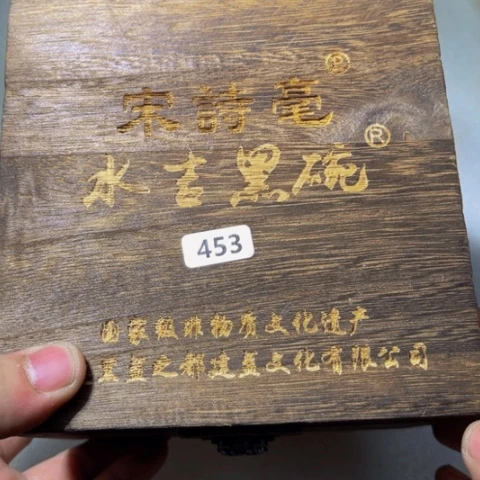 宋詩毫®
水吉黑碗®
453
国家级非物质文化遗产
黑盏之都建盏文化有限公司